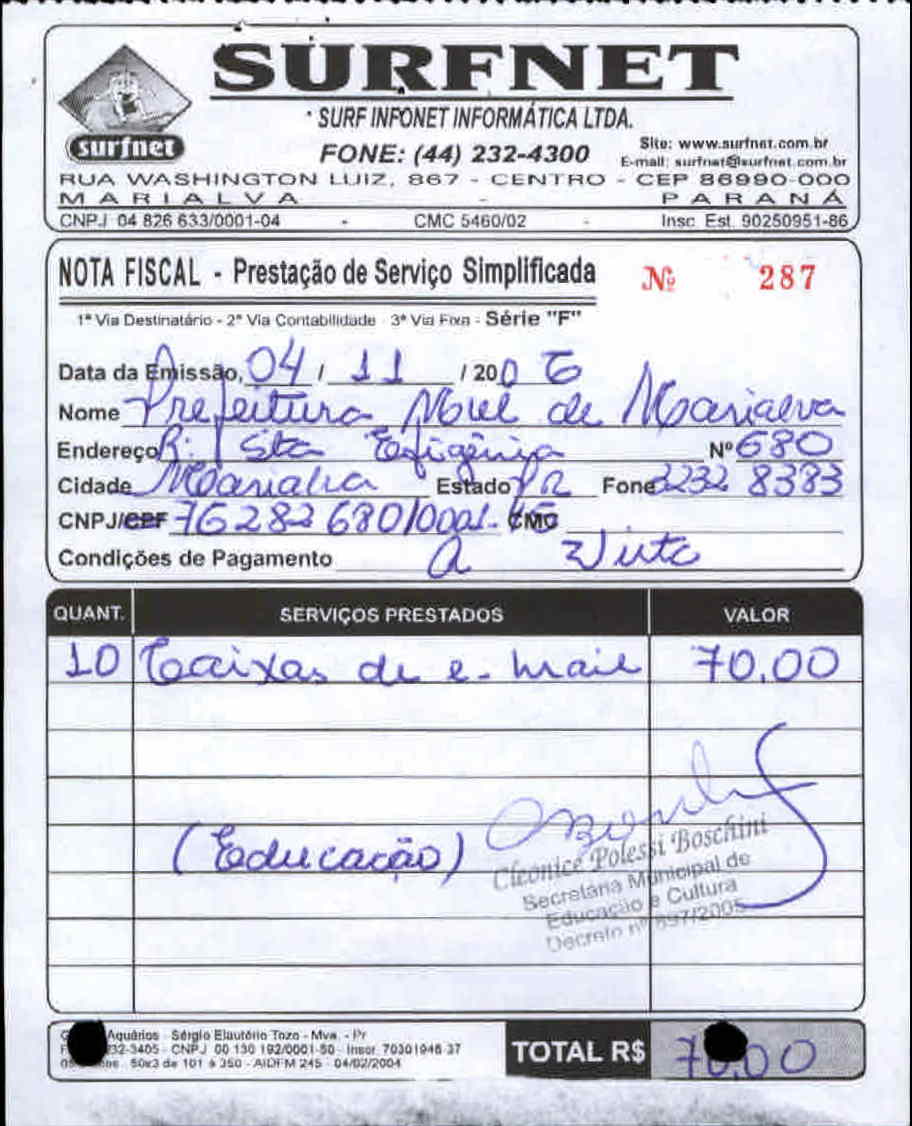 SURFNET
surfnet
SURF INFONET INFORMÁTICA LTDA.
FONE: (44) 232-4300
Site: www.surfnet.com.br
E-mail: surfnet@surfnet.com.br
RUA WASHINGTON LUIZ, 867 - CENTRO - CEP 86990-000
MARIALVA - PARANÁ
CNPJ 04 826 633/0001-04 - CMC 5460/02 - Insc. Est. 90250951-86
NOTA FISCAL - Prestação de Serviço Simplificada Nº 287
1ª Via Destinatário - 2ª Via Contabilidade - 3ª Via Fixa - Série "F"
Data da Emissão, 04 / 11 / 2006
Nome Prefeitura Mul de Marialva
Endereço R. Sta Efigênia Nº 680
Cidade Marialva Estado PR Fone 3232 8383
CNPJ/CPF 76 282 680/0001- CMC
Condições de Pagamento a Vista
QUANT. SERVIÇOS PRESTADOS VALOR
10 Caixas de e-mail 70,00
(Educação)
Cleonice Polessi Boschini
Secretária Municipal de
Educação e Cultura
Decreto nº 897/2005
Aquários - Sérgio Elautério Tozo - Mva. - Pr
32-3405 - CNPJ 00 130 192/0001-50 - Inscr. 70301946-37
50x3 de 101 a 350 - AIDFM 245 - 04/02/2004
TOTAL R$ 70,00